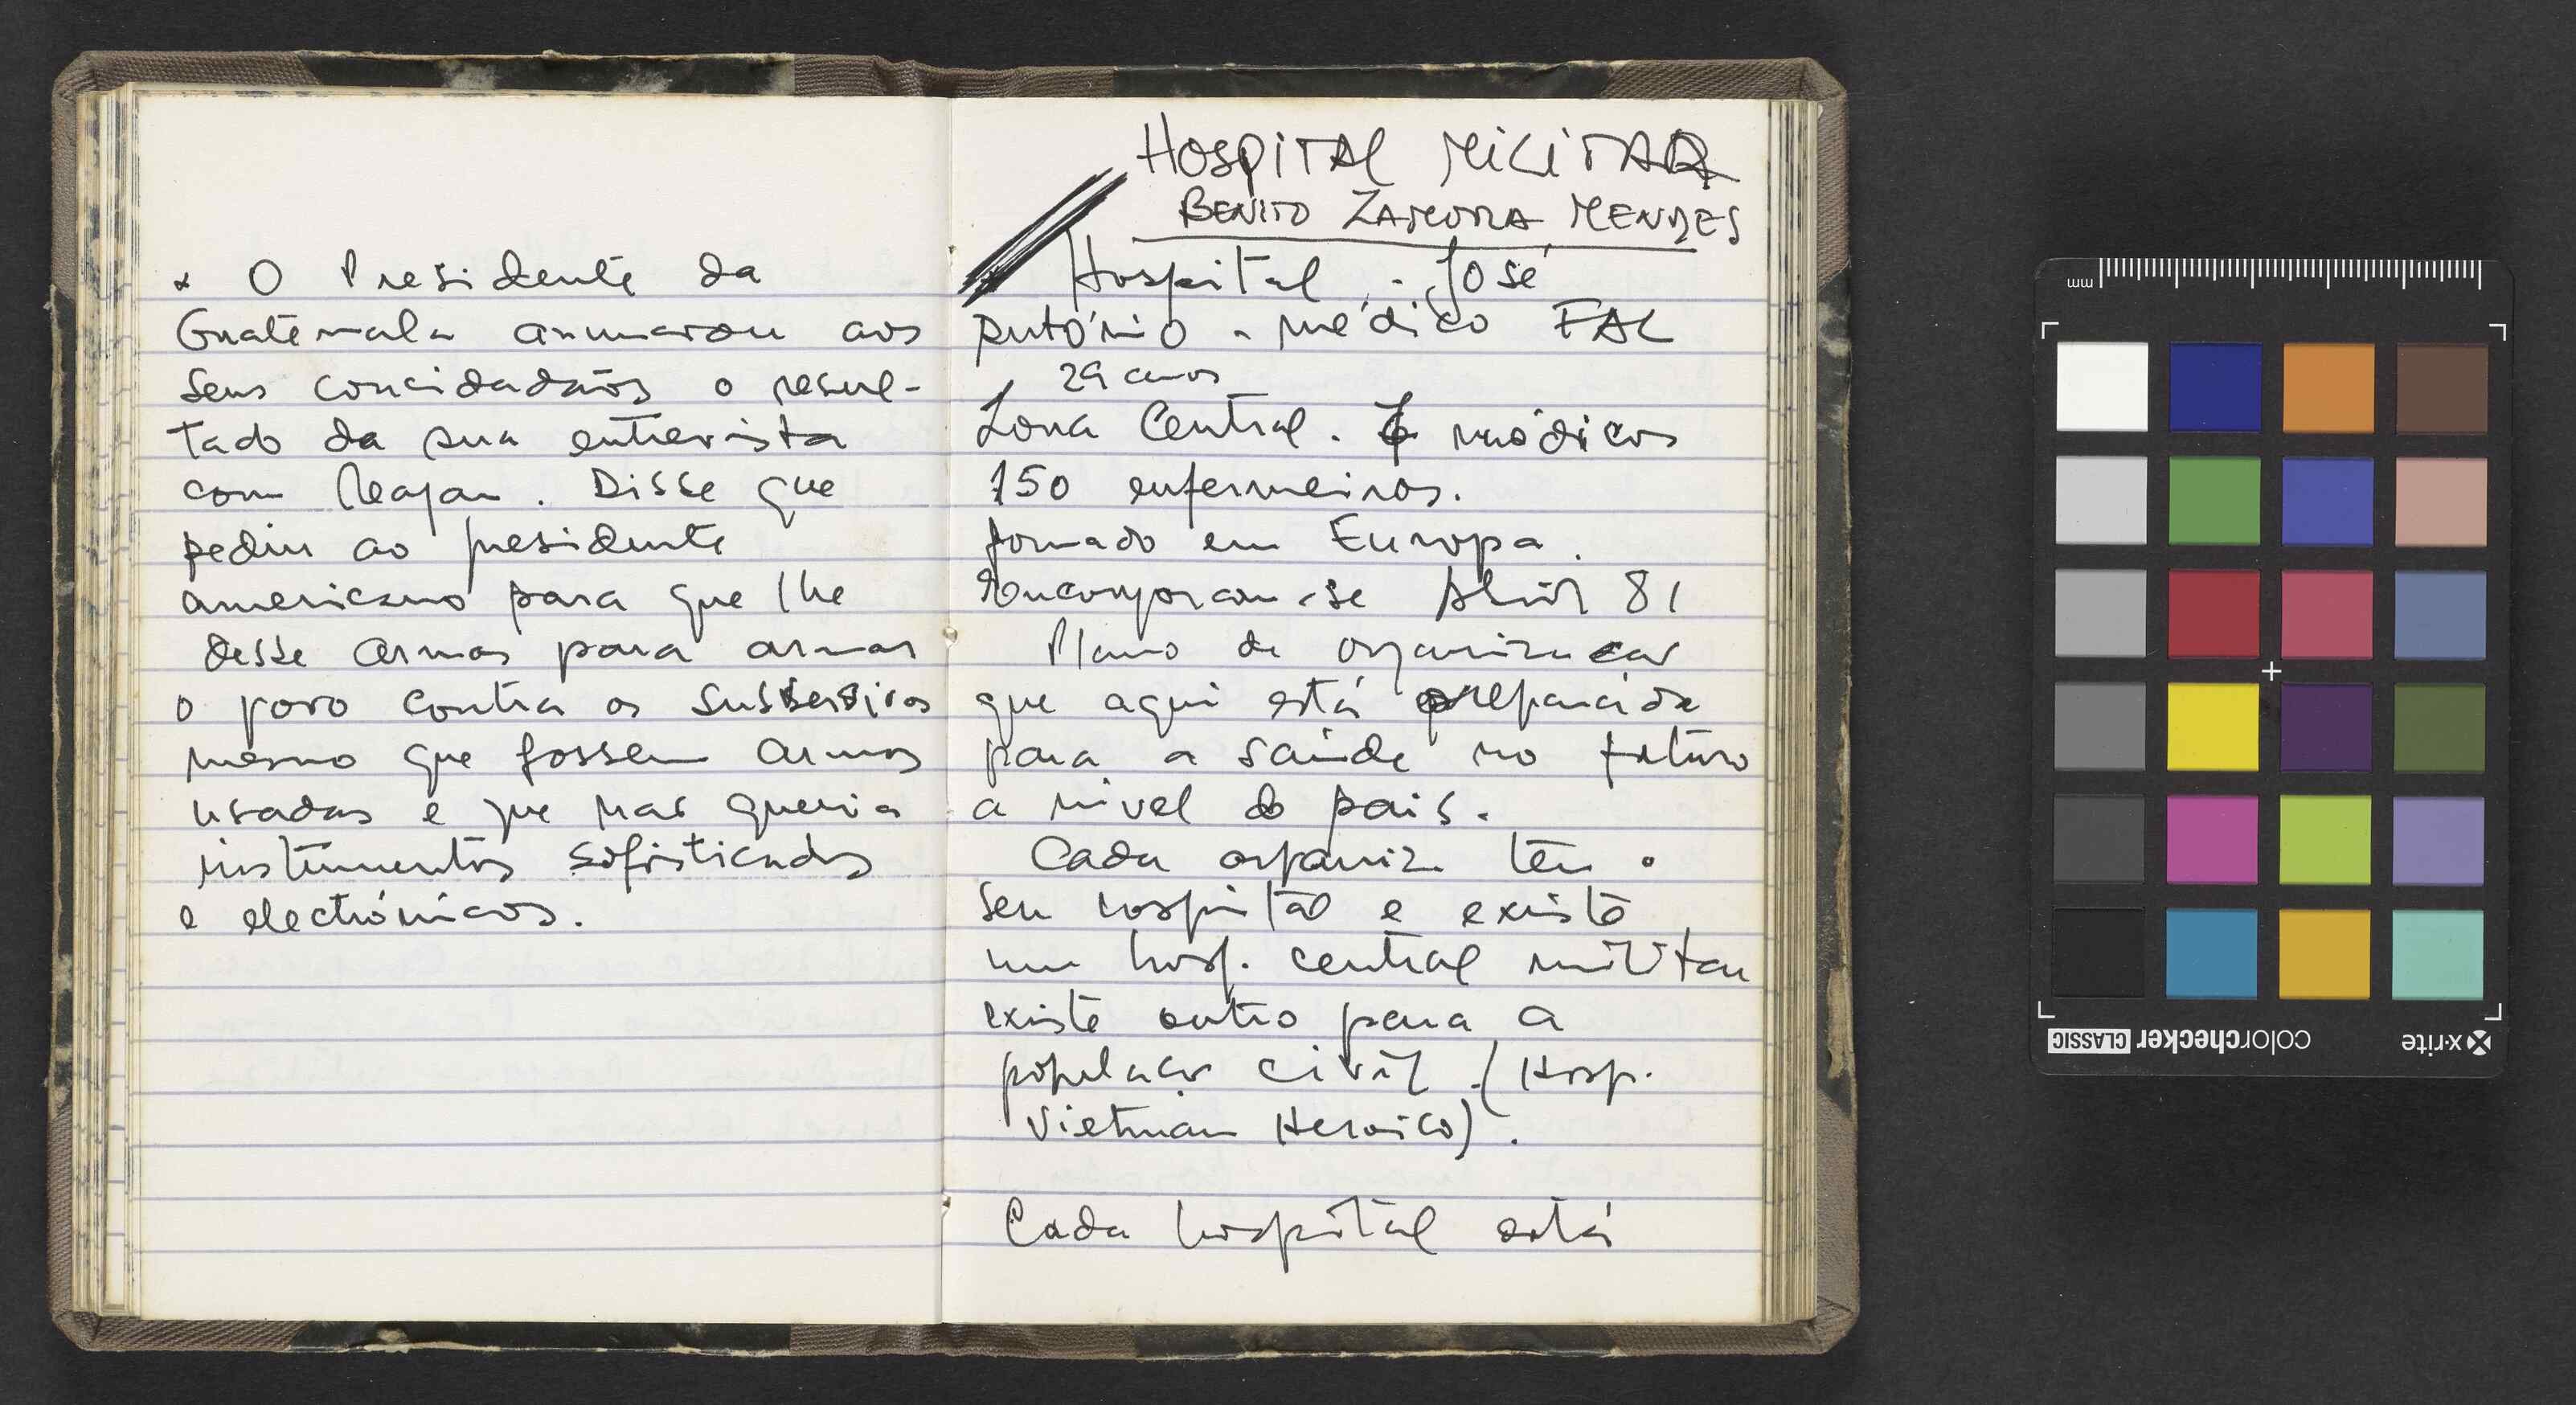 x O Presidente da
Guatemala anunciou aos
seus concidadãos o resul-
tado da sua entrevista
com Reagan. Disse que
pediu ao presidente
americano para que lhe
desse armas para armar
o povo contra os subversivos
mesmo que fossem armas
usadas e que nao queria
instrumentos sofisticados
e electrónicos.
HOSPITAL MILITAR
BENITO ZAMORA MENDES
Hospital - José
António - médico FAL
29 anos
Zona Central. médicos
150 enfermeiros.
formado em Europa.
Encorporou-se Abril 81
Plano de organizacao
que aqui está preparada
para a saúde no futuro
a nivel do pais.
Cada organiz tem o
seu hospital e existe
um hosp. central militar
existe outro para a
populacao civil. (Hosp.
Vietnam Heroico).
Cada hospital está
mm
x-rite
colorchecker CLASSIC